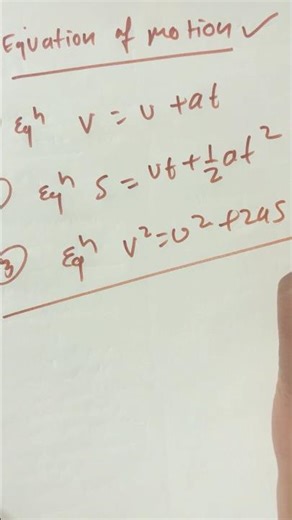 Equation of motion ✓
Eqⁿ v = u + at
) Eqⁿ s = ut + ½ at²
③ Eqⁿ v² = u² + 2as